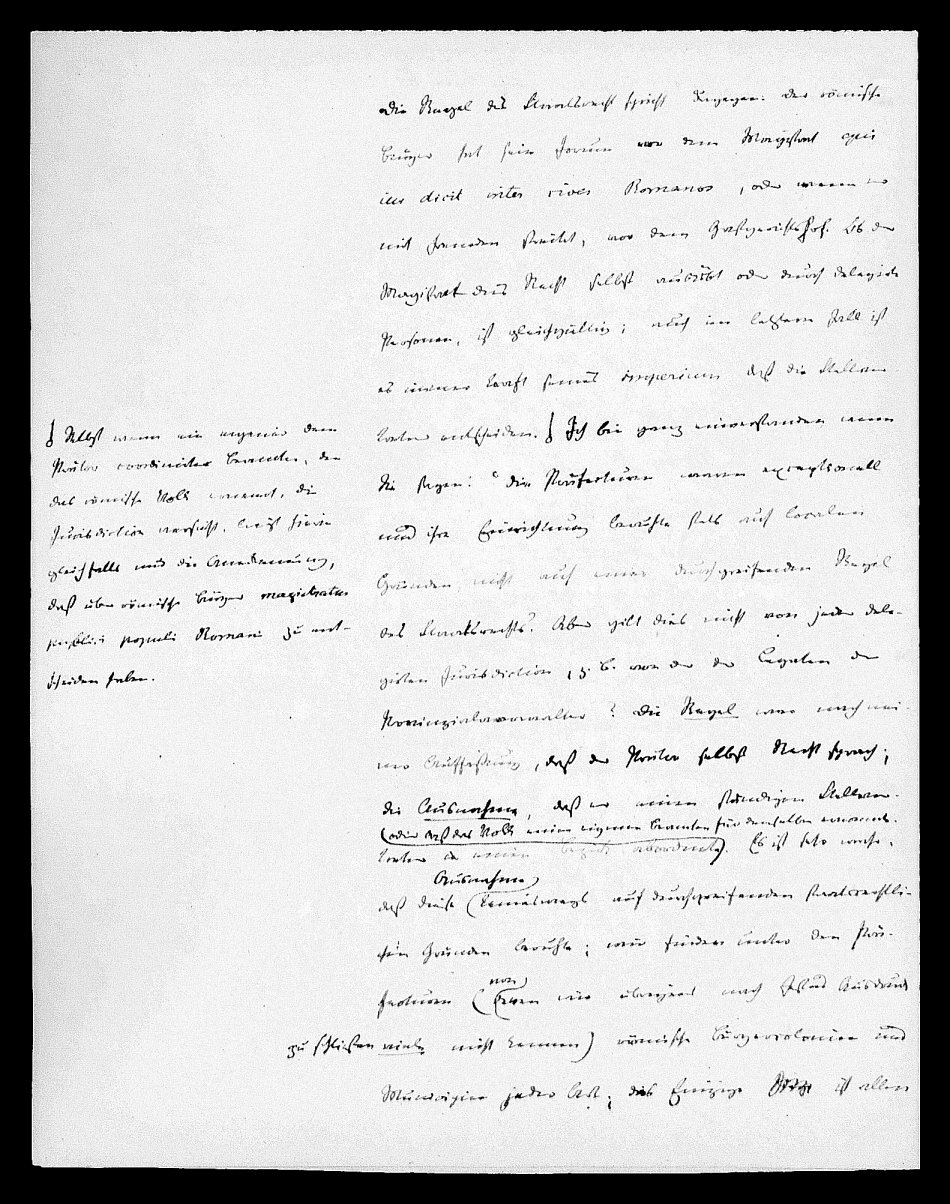 Die Regel des Staatsrechts spricht dagegen: der römische
Bürger hat sein Forum vor dem Magistrat qui
ius dicit inter cives Romanos, oder wenn er
mit Fremden streitet, vor dem Ob der
Magistrat das Recht selbst ausübt oder durch delegirte
Personen, ist gleichgültig; auch im letztern Fall ist
es immer kraft seines imperium daß die Stellver-
treter entscheiden. Ich bin ganz einverstanden wenn
Sie sagen: "die Präfecturen waren exceptionell
und ihre Einrichtung beruhte stets auf localen
Gründen, nicht auf einer durchgreifenden Regel
des Staatsrechts." Aber gilt dies nicht von jeder dele-
girten Jurisdiction, z. B. von der der Legaten der
Provinzialverwalter? Die Regel war nach mei-
ner Auffassung, daß der Prätor selbst Recht sprach;
die Ausnahme, daß er einen ständigen Stellver-
(oder daß das Volk einen eigenen Beamten für denselben ernannte)
treter in einen Bezirk abordnete. Es ist sehr wahr,
Ausnahme
daß diese keineswegs auf durchgreifenden staatsrechtli-
chen Gründen beruhte; wir finden unter den Prä-
fecturen (von denen wir übrigens nach Festus Ausdruck
zu schließen viele nicht kennen) römische Bürgercolonien und
Municipien jeder Art; das Einzige ist allen
Selbst wenn ein eigener dem
Prätor coordinirter Beamter, den
das römische Volk ernennt, die
Jurisdiction versieht, liegt hierin
gleichfalls nur die Anerkennung,
daß über römische Bürger magistratus
publici populi Romani zu ent-
scheiden haben.